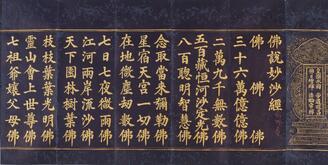 佛說妙沙經
佛　佛　佛
三十六萬億億佛
二萬九千無數佛
五百藏恒河沙定光佛
八百聰明智慧佛
念取當來彌勒佛
星宿天宮一切佛
在地微塵刼數佛
七日七夜徹雨佛
江河兩岸流沙佛
天下園林樹葉佛
枝枝葉葉光明佛
靈山會上世尊佛
七祖爺孃父母佛